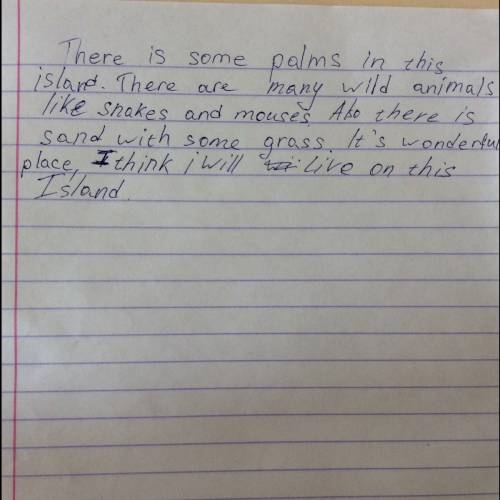 There is some palms in this
island. There are many wild animals
like snakes and mouses. Also there is
sand with some grass. It's wonderful
place, I think i will live on this
Island.